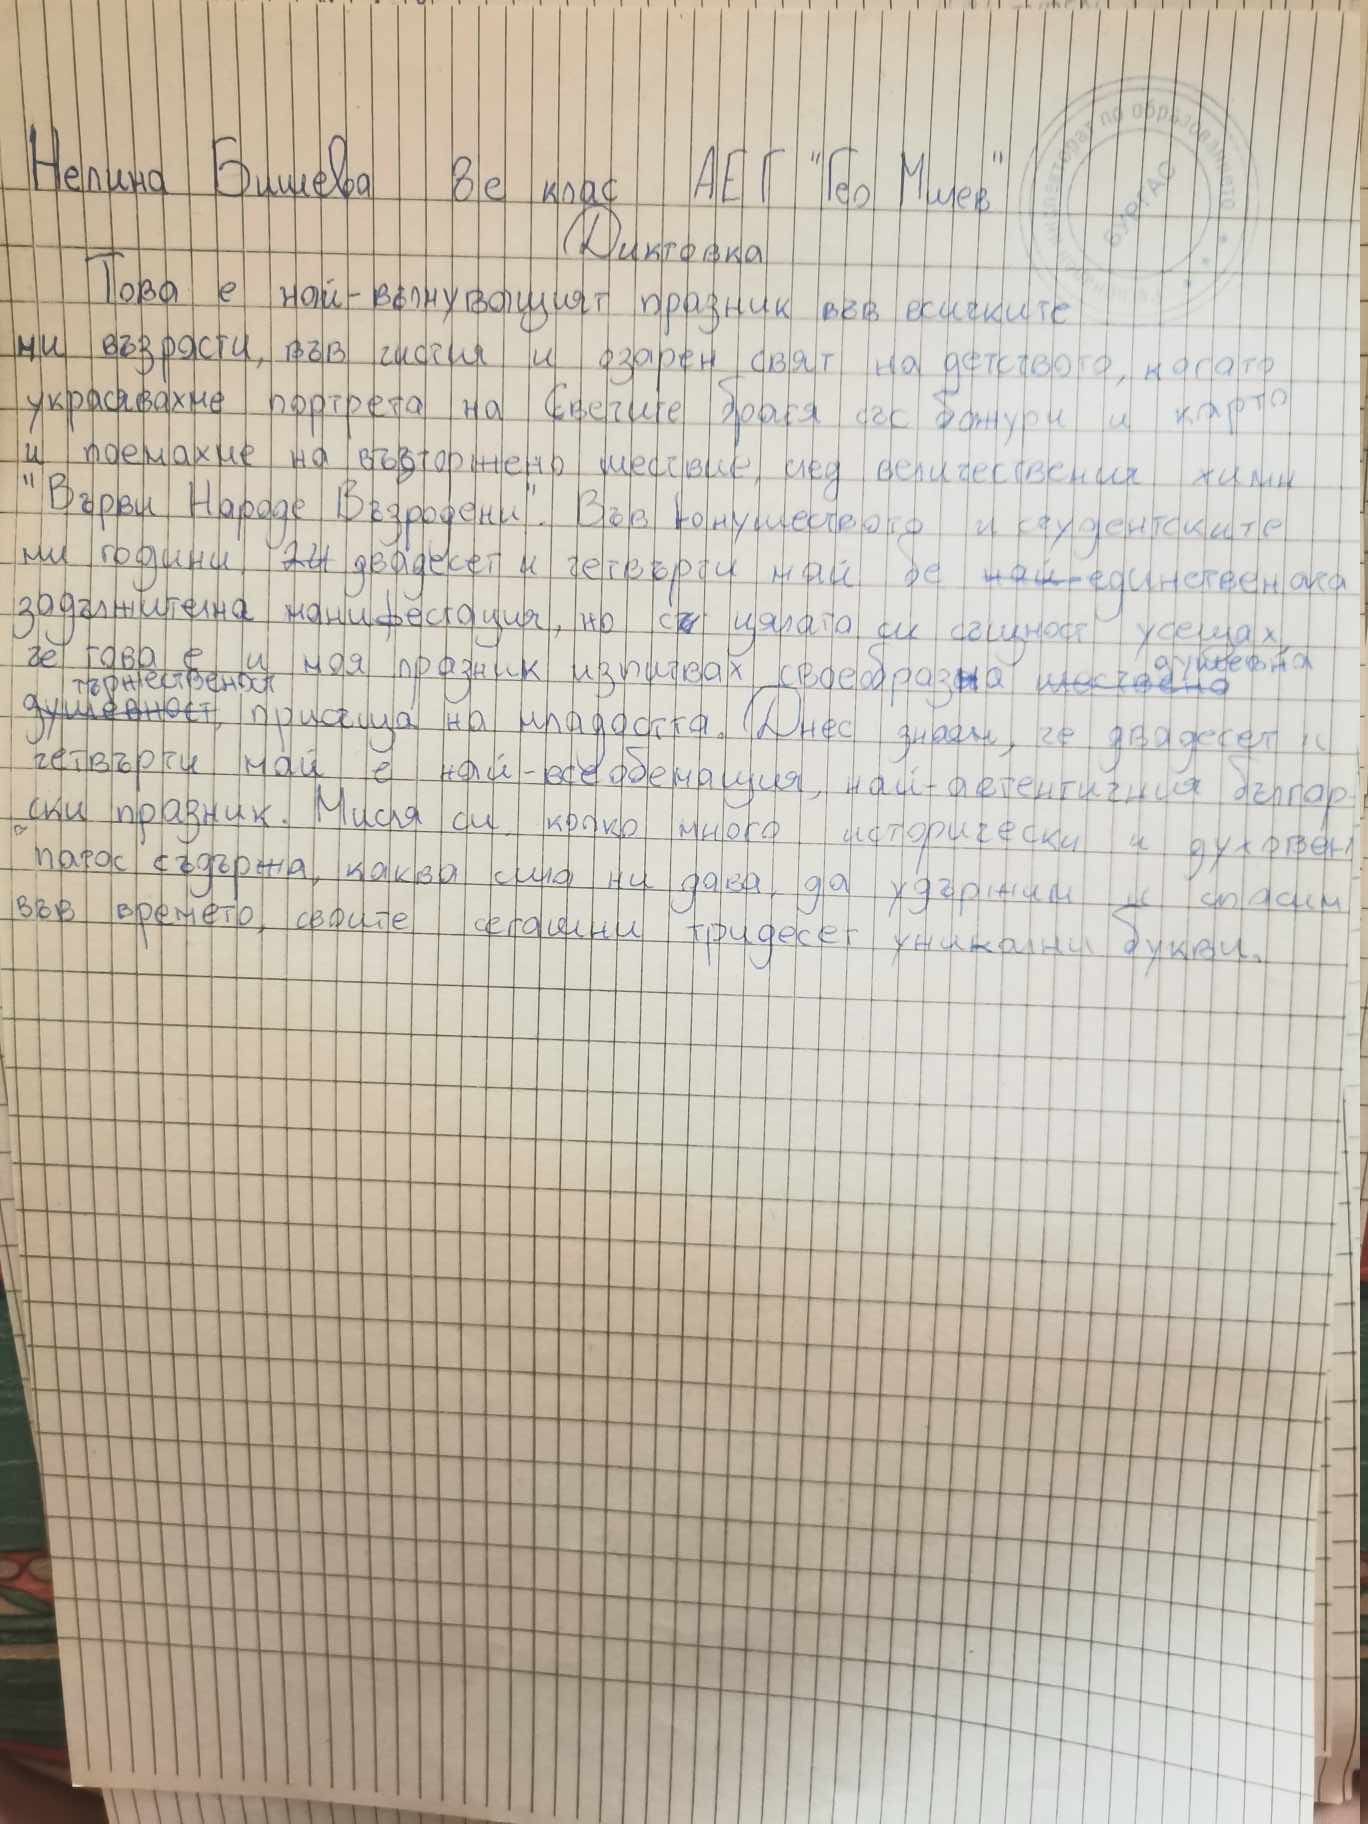 Нелина Бишева 8е клас АЕГ "Гео Милев"
Диктовка
Това е най-вълнуващият празник във всичките
ми възрасти, във чистия и озарен свят на детството, когато
украсявахме портрета на Светите братя със божури и карто
и поемахме на възторжено шествие, след величествения химн
"Върви Народе Възродени". Във юношеството и студентските
ми години, двадесет и четвърти май бе единствената
задължителна манифестация, но с цялата си същност усещах,
че това е и моя празник изпитвах своеобразна душевна
тържественост, присъща на младостта. Днес знаем, че двадесет и
четвърти май е най-всеобемащия, най-автентичния българ-
ски празник. Мисля си колко много исторически и духовен
патос съдържа, каква сила ни дава, да удържим и спасим
във времето, своите сегашни тридесет уникални букви.
по образованието
БУРГАС